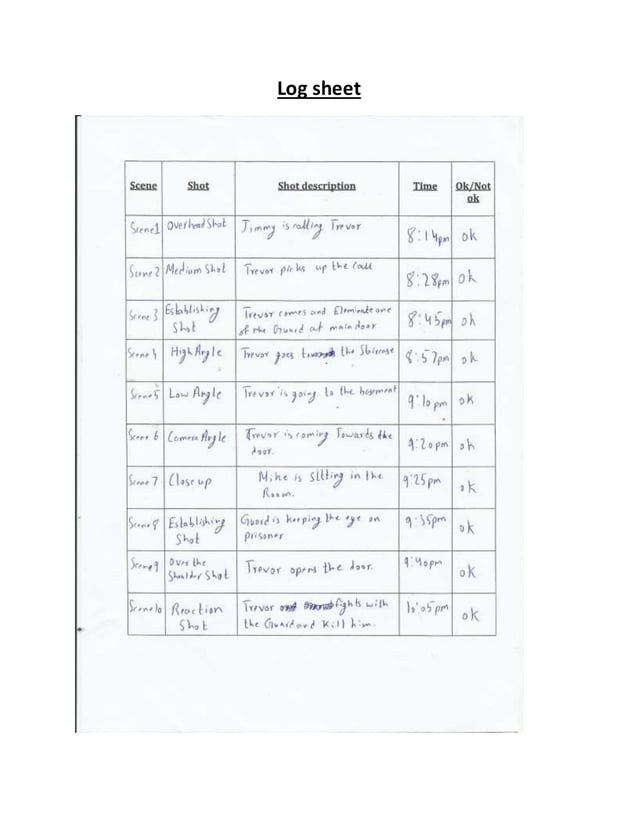 Log sheet
Scene Shot Shot description Time Ok/Not
ok
Scene1 Overhead Shot Jimmy is calling Trevor 8:14pm ok
Scene 2 Medium Shot Trevor picks up the Call 8:28pm ok
Scene 3 Establishing Trevor comes and Eleminate one 8:45pm ok
Shot of the Guard at main door
Scene 4 High Angle Trevor goes the Staircase 8:57pm ok
Scene 5 Low Angle Trevor is going to the basement 9:10 pm ok
Scene 6 Camera Angle Trevor is coming Towards the 9:20pm ok
door.
Scene 7 Close up Mike is sitting in the 9:25pm ok
Room.
Scene 8 Establishing Guard is keeping the eye on 9:35pm ok
Shot prisoner
Scene 9 Over the Trevor opens the door. 9:40pm ok
Shoulder Shot
Scene 10 Reaction Trevor fights with 10:05pm ok
Shot the Guard and Kill him.